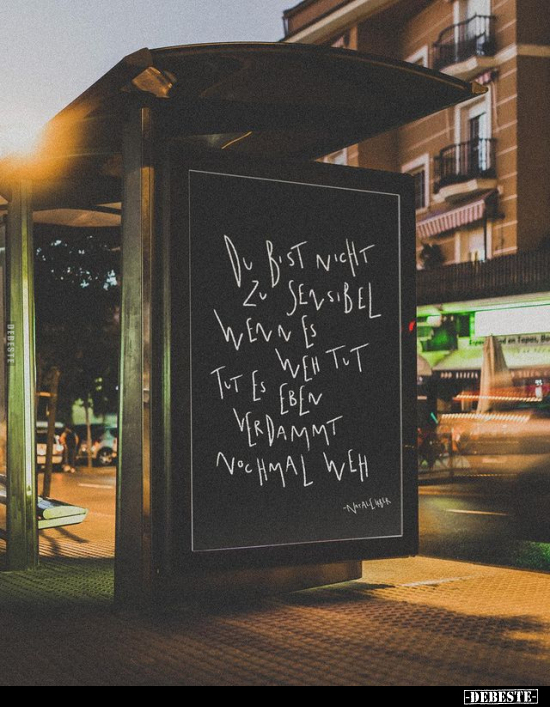 DU BIST NICHT
ZU SENSIBEL
WENN ES
WEH TUT
TUT ES EBEN
VERDAMMT
NOCHMAL WEH
DEBESTE
-DEBESTE-